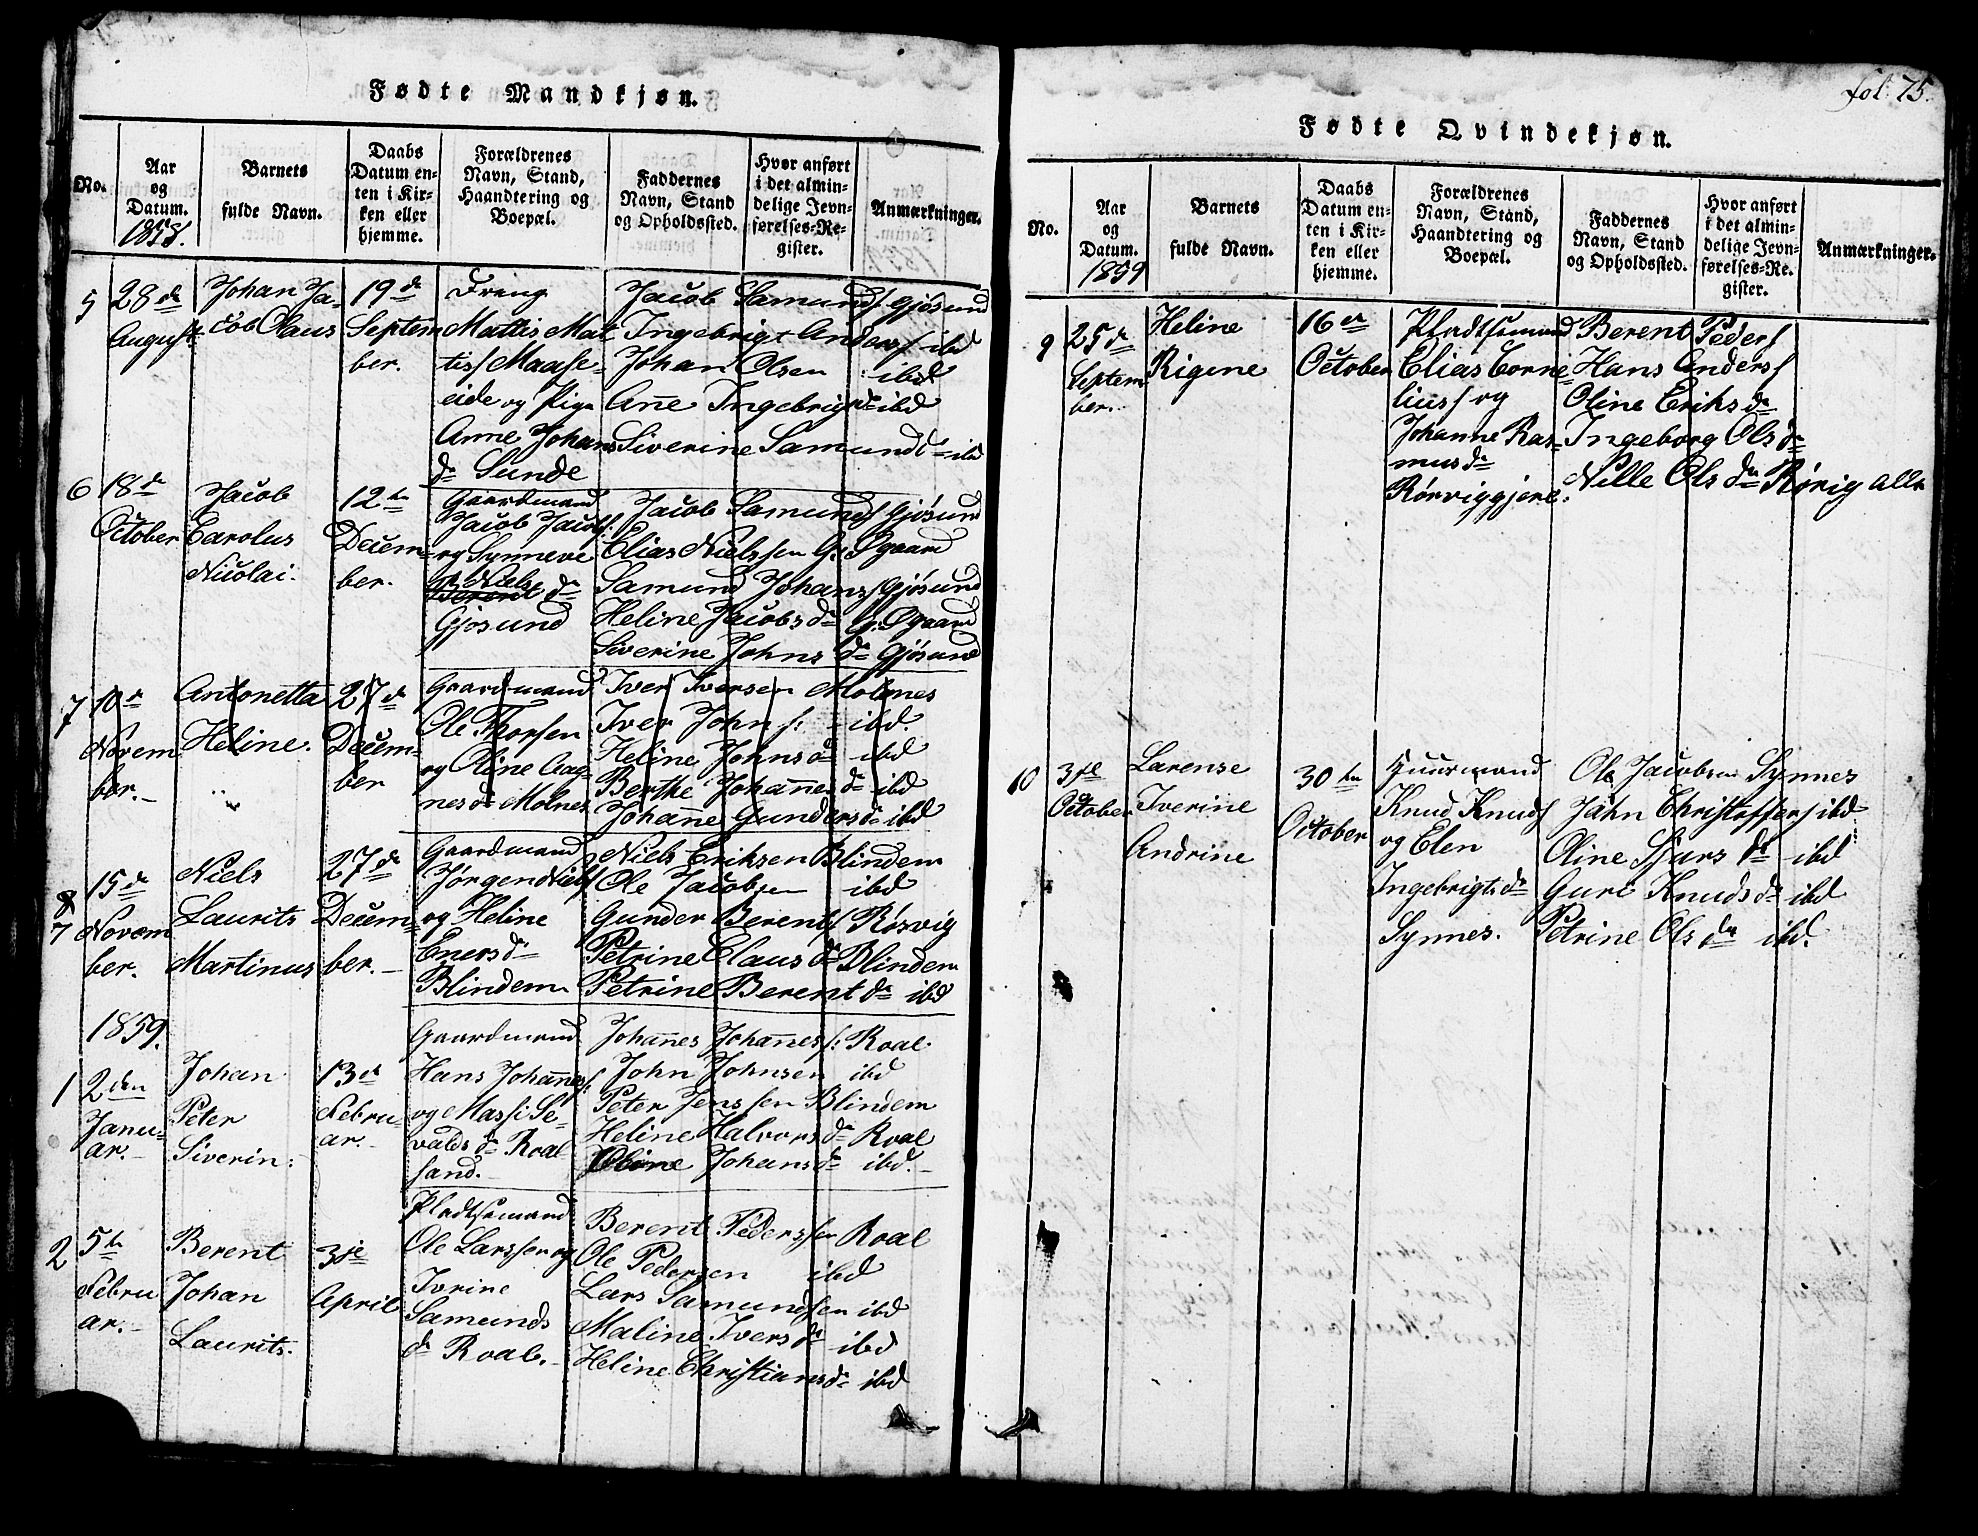 Fødte Mandkjøn.
No.
Aar
og
Datum.
1858.
Barnets
fulde Navn.
Daabs
Datum en-
ten i Kir-
ken eller
hjemme.
Forældrenes
Navn, Stand,
Haandtering og
Boepæl.
Faddernes
Navn, Stand
og Opholdssted.
Hvor anført
i det almin-
delige Jevn-
førelses-Re-
gister.
Anmærkninger.
5
28de
August
Johan Ja-
cob Olaus
19de
Septem
ber.
Dreng
Mattis Mat
tis/ Maase-
eide og Pige
Anne Johans
dr Sunde
Jacob Samunds/ Gjøsund
Ingebrigt Anders/ ibd
Johan Olsen ibd
Ane Ingebrigtdr ibd
Siverine Samundsdr ibd
6
18de
October
Jacob
Carolus
Nicolai.
12te
Decem-
ber.
Gaardmand
Jacob Jacobs/
og Synneve
Niels
Berent dr
Gjøsund
Jacob Samunds/ Gjøsund
Elias Nielssen Gr. Øgaard
Samund Johans/ Gjøsund
Heline Jacobsdr G. Øgaard
Siverine Johns dr Gjøsund
7
10de
Novem
ber.
Antonetta
Heline.
27de
Decem-
ber
Gaardmand
Ole Thorsen
og Oline Aag
nesdr Molnes
Iver Iversen Molnes
Iver John/: ibd.
Heline Johnsdr ibd
Berthe Johannesdr ibd
Johanne Gundersdr ibd
8
7
15de
Novem
ber.
Niels
Laurits
Martinus
27de
Decem-
ber.
Gaardmand
Jørgen Niels/
og Heline
Enersdr
Blindem
Niels Eriksen Blindem
Ole Jacobsen ibd
Gunder Berents/ Rørvig
Petrine Clausdr Blindem
Petrine Berentdr ibd
1859.
1
2den
Janu-
ar.
Johan
Peter
Siverin:
13de
Febru-
ar.
Gaardmand
Hans Johannes/:
og Massi Se-
valdsdr Roal
sand.
Johannes Johannes/: Roal
John Johnsen ibd
Peter Jenssen Blindem
Heline Halvorsdr Roal
Oline Johansdr ibd.
2
5te
Febru
ar.
Berent
Johan
Laurits.
3je
April
Pladtsemand
Ole Larssen og
Ivrine
Samunds
dr Roal.
Berent Pederssen Roal
Ole Pedersen ibd
Lars Samundsen ibd
Maline Iversdr ibd
Heline Christiansdr ibd
fol: 75.
Fødte Qvindekjøn.
No.
Aar
og
Datum.
1859
Barnets
fulde Navn.
Daabs
Datum en-
ten i Kir-
ken eller
hjemme.
Forældrenes
Navn, Stand,
Haandtering og
Boepæl.
Faddernes
Navn, Stand
og Opholdssted.
Hvor anført
i det almin-
delige Jevn-
førelses-Re-
gister.
Anmærkninger.
9
25de
Septem
ber.
Heline
Rigine
16de
October
Pladtsemand
Elias Corne-
lius/ og
Johanne Ras-
musdr
Rørviggjere.
Berent Peders/
Hans Anders/
Oline Eriksdr
Ingeborg Olsdr
Nille Olsdr Rørig alle
10
3je
October
Larense
Iverine
Andrine
30te
October
Huusmand
Knud Knuds/
og Elen
Ingebrigtsdr
Synnes.
Ole Jacobsen Synnes
John Christoffers/ ibd
Oline Sjursdr ibd
Guri Knudsdr ibd
Petrine Olsdr ibd.